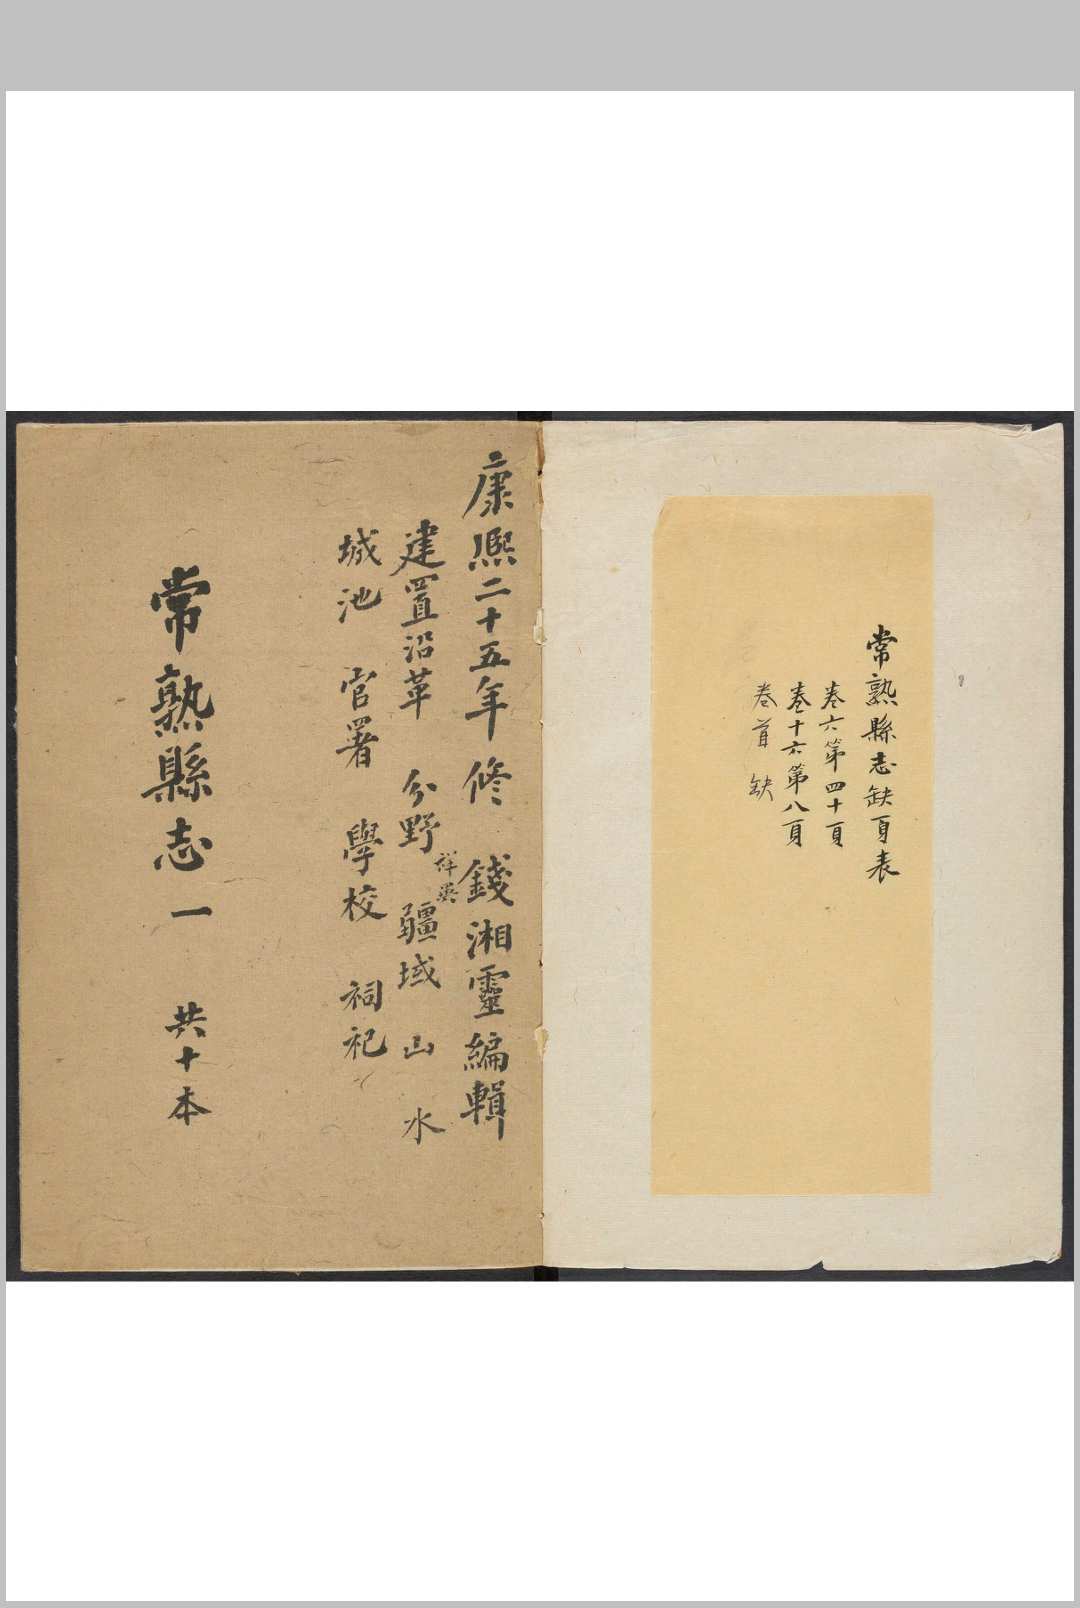 常熟縣志缺頁表
卷六第四十頁
卷十六第八頁
卷首缺
康熙二十五年修 錢湘靈編輯
建置沿革 分野 祥異 疆域 山 水
城池 官署 學校 祠祀
常熟縣志一 共十本